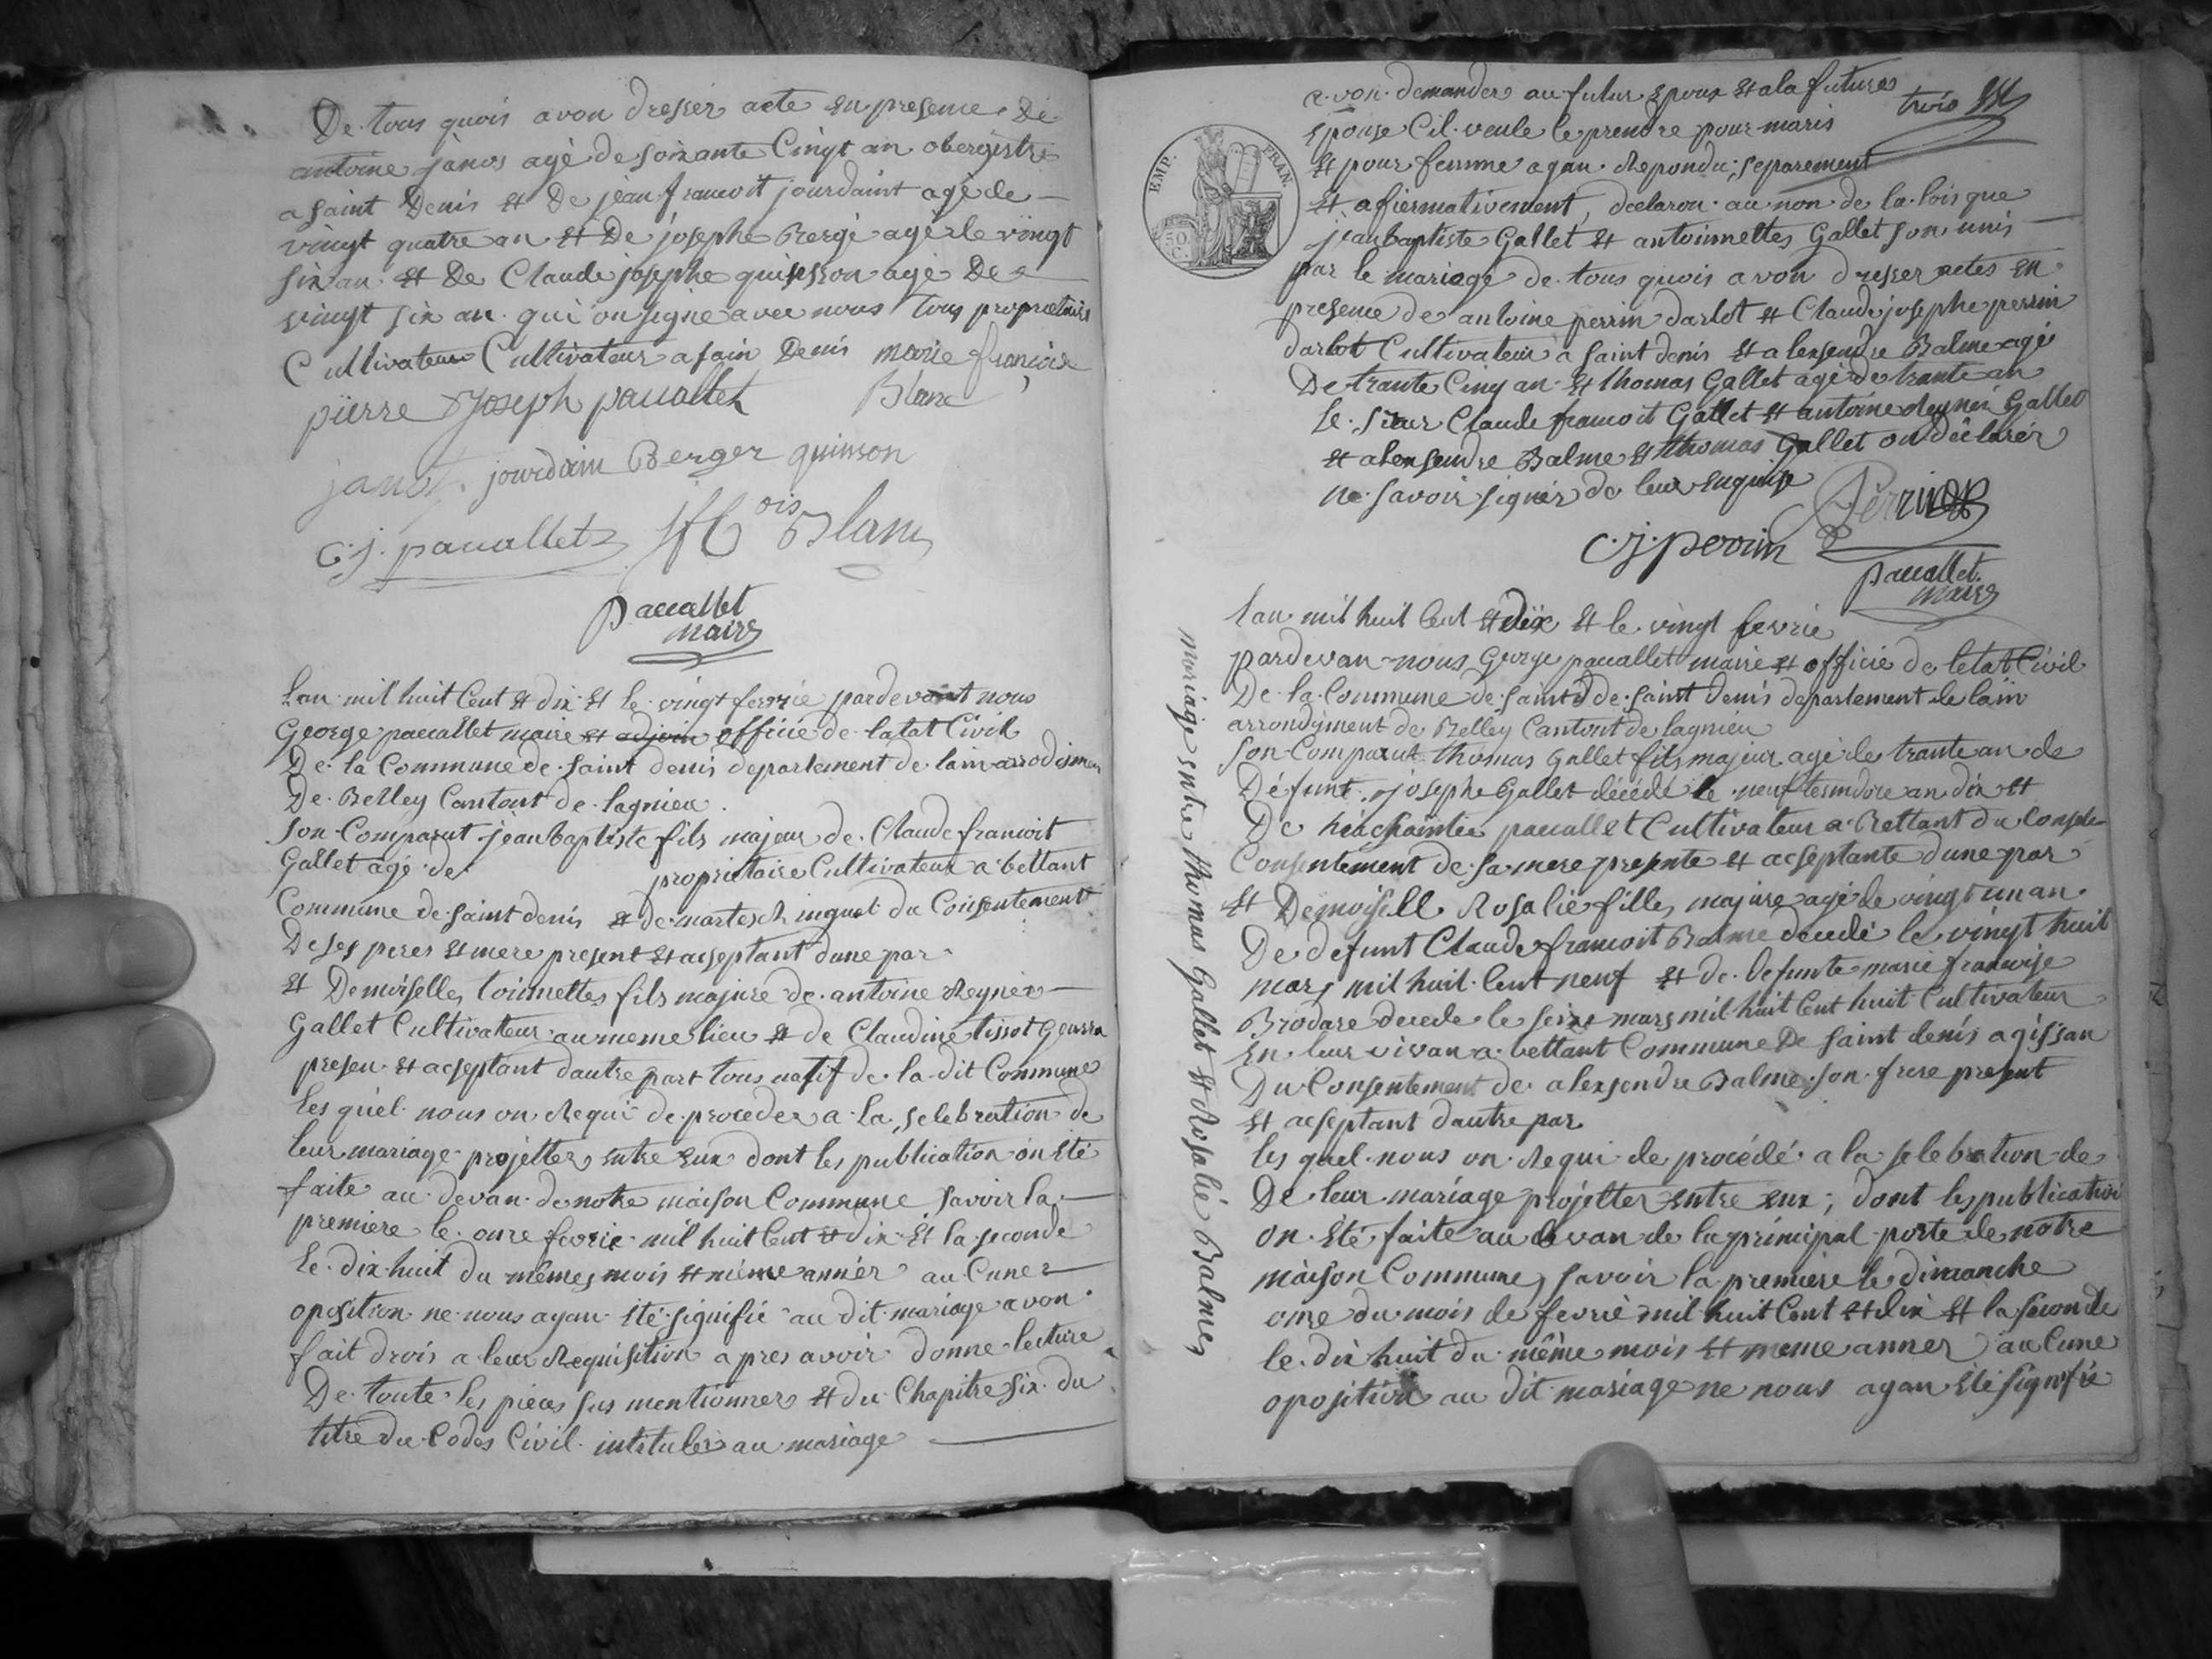 De tous quois avon dresser acte en presence De
antoine janos agé de soixante Cinqt an obergistre
a saint Denis et De jean francoit jourdaint agé de
vingt quatre an et De josephe Bergé agé de vingt
six an et De Claude josephe quisson agé De
vingt six an qui on signe avec nous tous propriœtaires
Cultivateur Cultivateur a sain Denis marie françoise
pierre Joseph paucallet Blanc
janot jourdain Berger quinson
C. j. paucallet ois Blanc
paucallet
maire
Lan mil huit Cent et dix et le vingt fevrie pardevant nous
George paucallet maire et adjoin officié de latat Civil
De la Commune de saint denis departement de lain arrodismen
De Belley Cantont de lagnieu
son Comparut jean baptiste fils majeur de Claude francoit
Gallet agé de propriétaire Cultivateur a bettant
Commune de saint denis et de martesch inguet du Consentement
De ses peres et mere present et acseptant dune par
et Demoiselles toinnettes fils majure de antoine Reynier
Gallet Cultivateur au meme lieu et de Claudine tissot
presen et acseptant dautre part tous natif de la dit Commune
les quel nous on Requi de proceder a la selebration de
leur mariage projetter entre eux dont les publication on été
faite au devan de notre maison Commune savoir la
premiere le onze fevrie mil huit Cent et dix et la seconde
le dix huit du mêmes mois et même annér au Cune
oposition ne nous ayan été signifié au dit mariage avon
fait drois a leur Requisition apres avoir donne lecture
De toute les pieces sus mentionner et du Chapitre six du
titre du Codes Civil intituler au mariage
avon demander au futur epoux et a la futures
trois
epouse Cil veule le prendre pour maris
et pour femme agan Repondu separement
et afiermativement, declaron au non de la lois que
jean baptiste Gallet et antoinnettes Gallet son unis
par le mariage de tous quois avon dresser actes en
presence de antoine perrin darlot et Claude josephe perrin
darlot Cultivateur a saint denis et alexsendre Balme agé
De trante Cinq an et thomas Gallet agé de trante an
le sieur Claude francoit Gallet et antoine Reynier Gallet
et alexsendre Balme et thomas Gallet on déclarér
ne savoir signér de leur enquise
Perrin
C. j. perrin
paucallet
maire
mariage entre thomas Gallet et Rosalié Balmes
lan mil huit Cent et dix et le vingt fevrie
pardevan nous George paucallet maire et officié de letat Civil
De la Commune de saint d de saint denis departement de lain
arrondiment de Belley Cantont de lagnieu
son Comparut thomas Gallet fils majeur agé de trante an de
Défunt josephe Gallet décédé le neuf an dix et
De paucallet Cultivateur a Bettant du Conple
Consentement de sa mere presente et acseptante dune par
et Demoisell Rosalié filles majure agé de vingt un an
De defunt Claude francoit Balme decedé le vingt huit
mars mil huit Cent neuf et de defunte marie francoise
Brodare decede le seize mars mil huit Cent huit Cultivateur
En leur vivan a bettant Commune De saint denis agissan
Du Consentement de alexsendre Balme son frere present
et acseptant dautre par
les quel nous on Requi de procédé a la selebration de
De leur mariage projetter entre eux, dont les publication
on été faite au devan de la principal porte de notre
maison Commune, savoir la premiere le dimanche
onze du mois de fevrié mil huit Cent et dix et la seconde
le dix huit du même mois et meme anner au Cune
oposition au dit mariage ne nous agan été signifié
EMP. FRAN.
50 C.